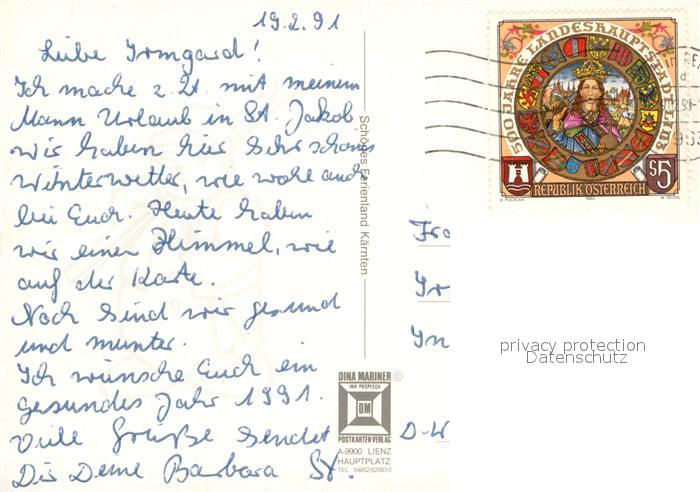 19.2.91
Liebe Irmgard!
Ich mache z. Zt. mit meinem
Mann Urlaub in St. Jakob
wir haben hier sehr schönes
Winterwetter, wie wohl auch
bei Euch. Heute haben
wir einen Himmel, wie
auf der Karte.
Noch sind wir gesund
und munter.
Ich wünsche Euch ein
gesundes Jahr 1991.
Viele Grüße sendet
Dir Deine Barbara St.
Schönes Ferienland Kärnten
DINA MARINER ©
INH POSPESCH
DM
POSTKARTENVERLAG
A-9900 LIENZ
HAUPTPLATZ
TEL. 04852/62083-0
500 JAHRE LANDESHAUPTSTADT LINZ
REPUBLIK ÖSTERREICH
S5
1990
Fra
Ir
In
D-W
privacy protection
Datenschutz